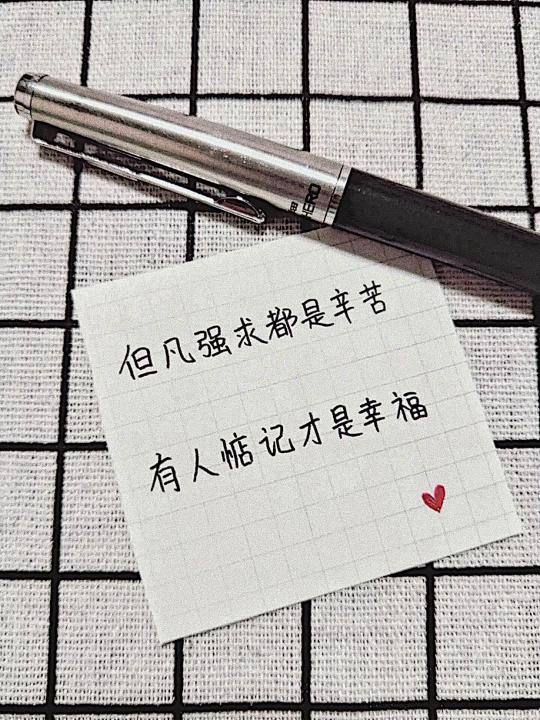 HERO
但凡强求都是辛苦
有人惦记才是幸福